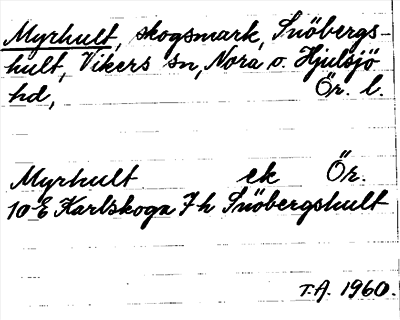 Myrhult, skogsmark, Snöbergs-
hult, Vikers sn, Nora o. Hjulsjö
hd, Ör. l.
Myrhult ek Ör.
10 E Karlskoga 7 h Snöbergshult
T.A. 1960.